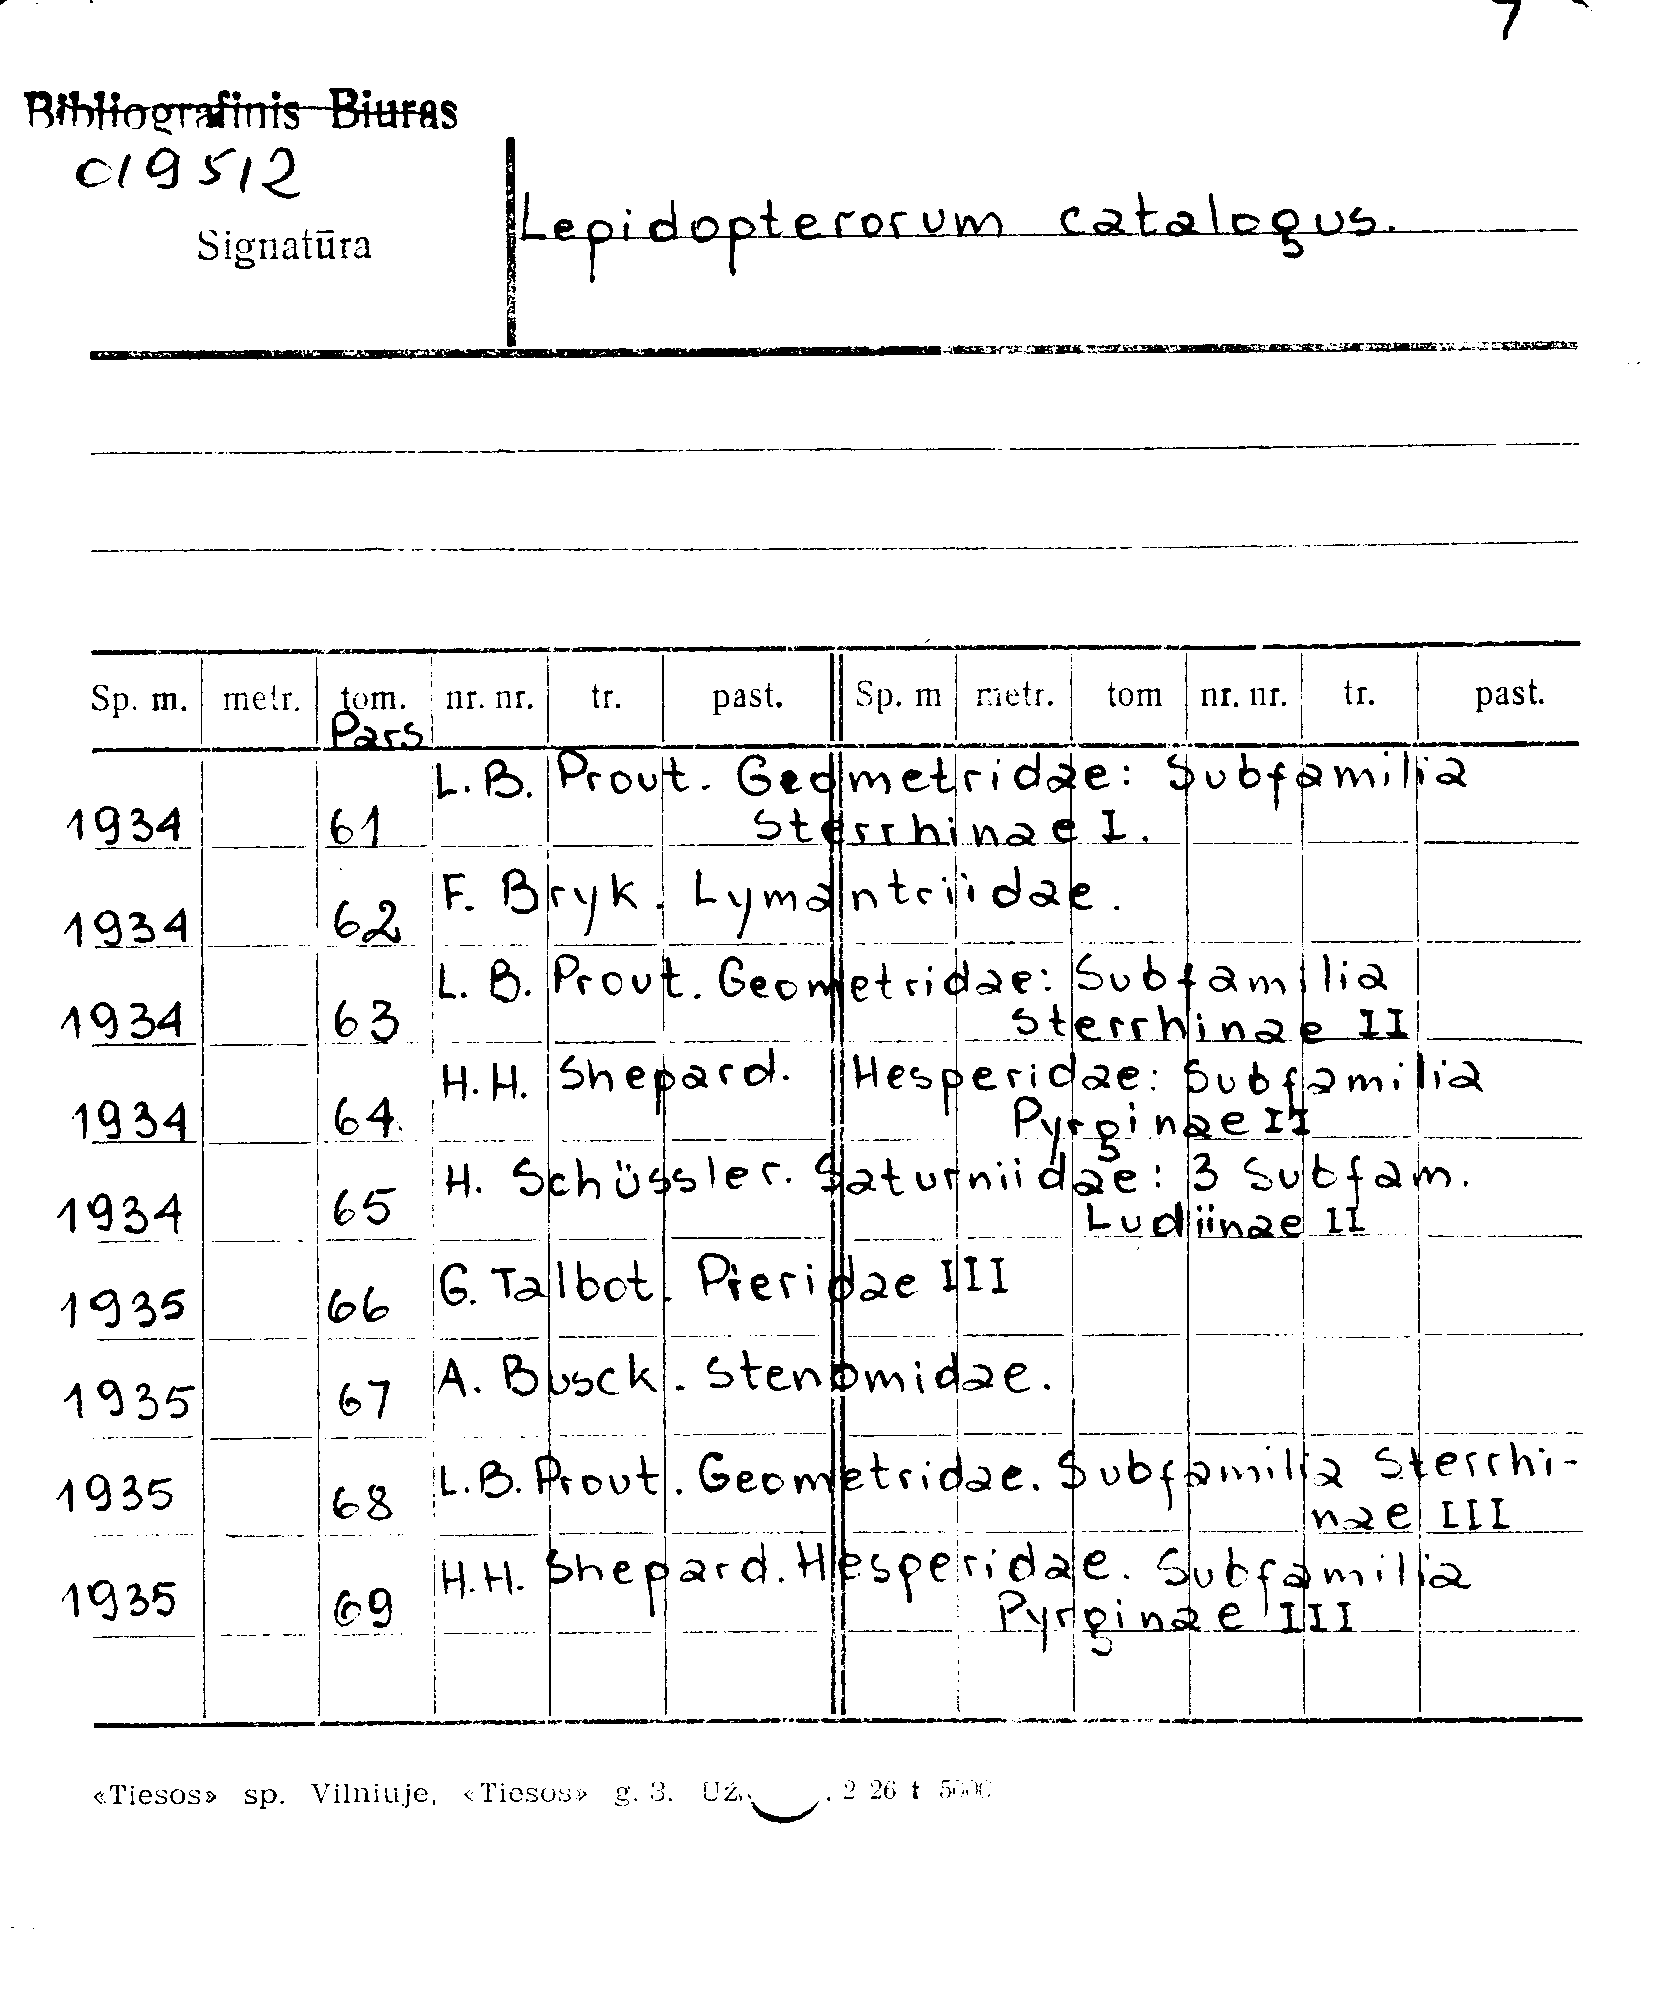 7
Bibliografinis Biuras
c19512
Signatūra
Lepidopterorum catalogus.
Sp. m. metr. tom. nr. nr. tr. past. Sp. m metr. tom nr. nr. tr. past.
Pars
L. B. Prout. Geometridae: Subfamilia
1934 61 Sterrhinae I.
F. Bryk. Lymantriidae.
1934 62
L. B. Prout. Geometridae: Subfamilia
1934 63 Sterrhinae II
H. H. Shepard. Hesperidae: Subfamilia
1934 64. Pyrginae II
H. Schüssler. Saturniidae: 3 Subfam.
1934 65 Ludiinae II
1935 66 G. Talbot. Pieridae III
1935 67 A. Busck. Stenomidae.
1935 68 L. B. Prout. Geometridae. Subfamilia Sterrhi-
nae III
1935 69 H. H. Shepard. Hesperidae. Subfamilia
Pyrginae III
«Tiesos» sp. Vilniuje, «Tiesos» g. 3. Už. 2 26 t